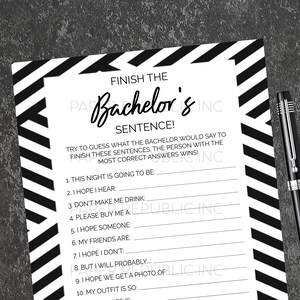 FINISH THE
Bachelor's
SENTENCE!
TRY TO GUESS WHAT THE BACHELOR WOULD SAY TO
FINISH THESE SENTENCES. THE PERSON WITH THE
MOST CORRECT ANSWERS WINS!
1. THIS NIGHT IS GOING TO BE:
2. I HOPE I HEAR:
3. DON'T MAKE ME DRINK:
4. PLEASE BUY ME A
5. I HOPE SOMEONE:
6. MY FRIENDS ARE:
7. I HOPE I DON'T:
8. BUT I WILL PROBABLY...:
9. I HOPE WE GET A PHOTO OF:
10. MY OUTFIT IS SO: